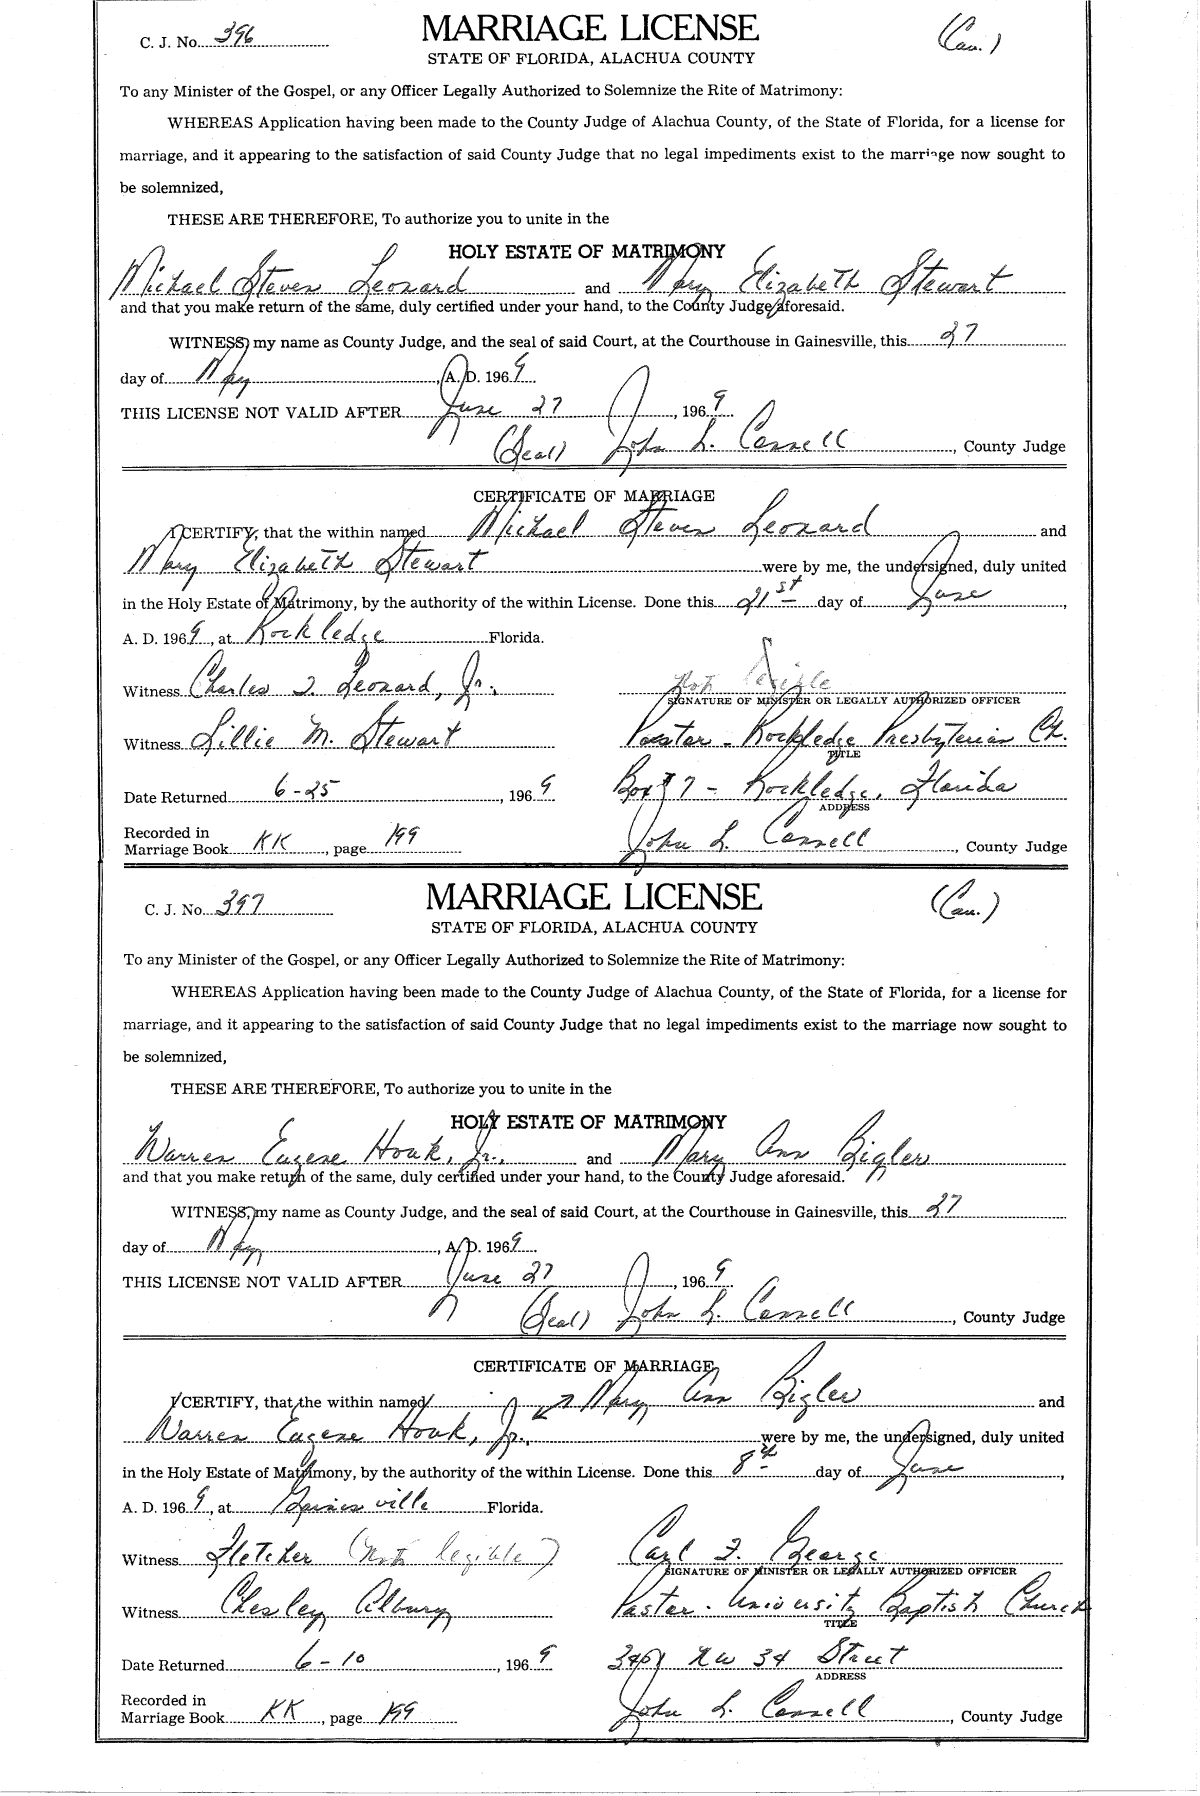 C. J. No. 396
MARRIAGE LICENSE
(Cau.)
STATE OF FLORIDA, ALACHUA COUNTY
To any Minister of the Gospel, or any Officer Legally Authorized to Solemnize the Rite of Matrimony:
WHEREAS Application having been made to the County Judge of Alachua County, of the State of Florida, for a license for
marriage, and it appearing to the satisfaction of said County Judge that no legal impediments exist to the marriage now sought to
be solemnized,
THESE ARE THEREFORE, To authorize you to unite in the
HOLY ESTATE OF MATRIMONY
Michael Steven Leonard and Mary Elizabeth Stewart
and that you make return of the same, duly certified under your hand, to the County Judge aforesaid.
WITNESS, my name as County Judge, and the seal of said Court, at the Courthouse in Gainesville, this 27
day of May, A. D. 1969
THIS LICENSE NOT VALID AFTER June 27, 1969
(Seal) John L. Connell, County Judge
CERTIFICATE OF MARRIAGE
I CERTIFY, that the within named Michael Steven Leonard and
Mary Elizabeth Stewart were by me, the undersigned, duly united
in the Holy Estate of Matrimony, by the authority of the within License. Done this 21st day of June,
A. D. 1969, at Rockledge Florida.
Witness Charles T. Leonard, Jr., not legible
SIGNATURE OF MINISTER OR LEGALLY AUTHORIZED OFFICER
Witness Lillie M. Stewart Pastor - Rockledge Presbyterian Ch.
TITLE
Date Returned 6-25, 1969 Box 7 - Rockledge, Florida
ADDRESS
Recorded in
Marriage Book KK, page 199 John L. Connell, County Judge
C. J. No. 397
MARRIAGE LICENSE
(Cau.)
STATE OF FLORIDA, ALACHUA COUNTY
To any Minister of the Gospel, or any Officer Legally Authorized to Solemnize the Rite of Matrimony:
WHEREAS Application having been made to the County Judge of Alachua County, of the State of Florida, for a license for
marriage, and it appearing to the satisfaction of said County Judge that no legal impediments exist to the marriage now sought to
be solemnized,
THESE ARE THEREFORE, To authorize you to unite in the
HOLY ESTATE OF MATRIMONY
Warren Eugene Houk, Jr., and Mary Ann Bigler
and that you make return of the same, duly certified under your hand, to the County Judge aforesaid.
WITNESS, my name as County Judge, and the seal of said Court, at the Courthouse in Gainesville, this 27
day of May, A. D. 1969
THIS LICENSE NOT VALID AFTER June 27, 1969
(Seal) John L. Connell, County Judge
CERTIFICATE OF MARRIAGE
I CERTIFY, that the within named Mary Ann Bigler and
Warren Eugene Houk, Jr., were by me, the undersigned, duly united
in the Holy Estate of Matrimony, by the authority of the within License. Done this 8th day of June,
A. D. 1969, at Gainesville Florida.
Witness Fletcher (not legible) Carl F. George
SIGNATURE OF MINISTER OR LEGALLY AUTHORIZED OFFICER
Witness Chesley Albury Pastor - University Baptist Church
TITLE
Date Returned 6-10, 1969 NW 34 Street
ADDRESS
Recorded in
Marriage Book KK, page 199 John L. Connell, County Judge